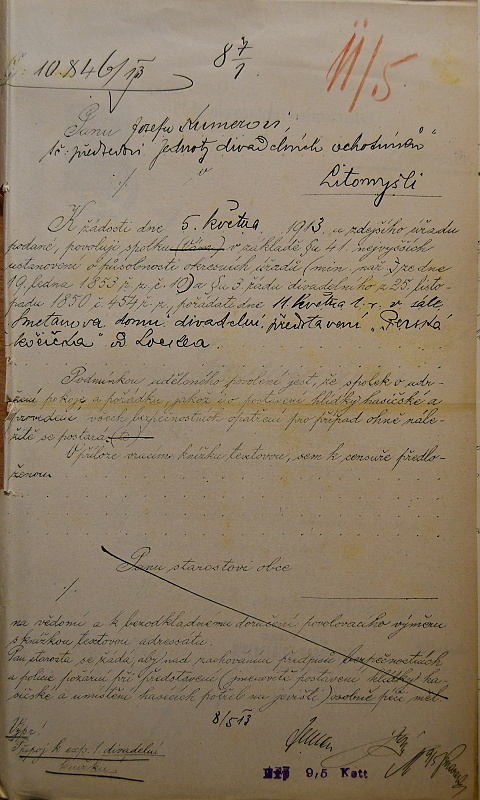 10.846/13
8 7/1
11/5
Panu Josefu
předsedovi "Jednoty divadelních ochotníků"
v
Litomyšli
K žádosti dne 5. května 1913, u zdejšího úřadu
podané, povoluji spolku v základě §u 41. nejvyšších
ustanovení o působnosti okresních úřadů (min. nař. ze dne
19. ledna 1853 ř. z. č. 10) a §u 3. řádu divadelního z 25. listo-
padu 1850 č. 454 ř. z., pořádati dne 11. května t. r. v sále
Smetanova domu divadelní představení "Perská
kočička" od
Podmínkou uděleného povolení jest, že spolek o udr-
žení pokoje a pořádku, jakož i o postavení hlídky hasičské a
provedení všech bezpečnostních opatření pro případ ohně nále-
žitě se postará.
V příloze vracím knížku textovou, sem k censuře předlo-
ženou.
Panu starostovi obce
na vědomí a k bezodkladnému doručení povolovacího výměru
s knížkou textovou adressátu.
Pan starosta se žádá, aby nad zachováním předpisů bezpečnostních
a policie požární při představení (jmenovitě postavení hlídky ha-
sičské a umístění hasicích potřeb na jevišti) osobně péči měl.
8/5 13
Připoj k exp. 1 divadelní
knížku.
9,5 Kott